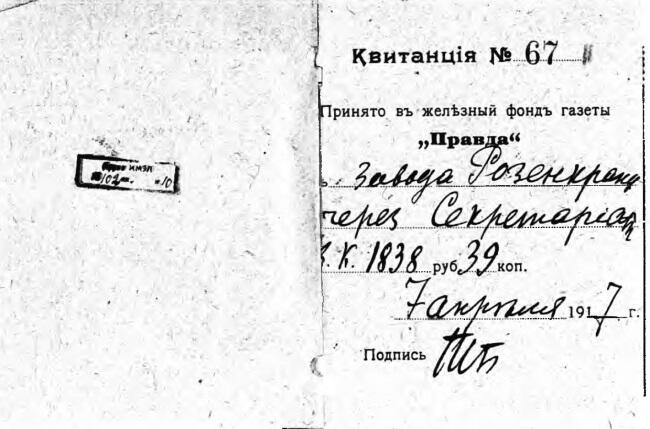 Квитанція № 67
Принято въ желѣзный фондъ газеты
„Правда“
завода Розенкранц
через Секретариат
К. 1838 руб 39 коп.
7 апреля 1917 г.
Подпись